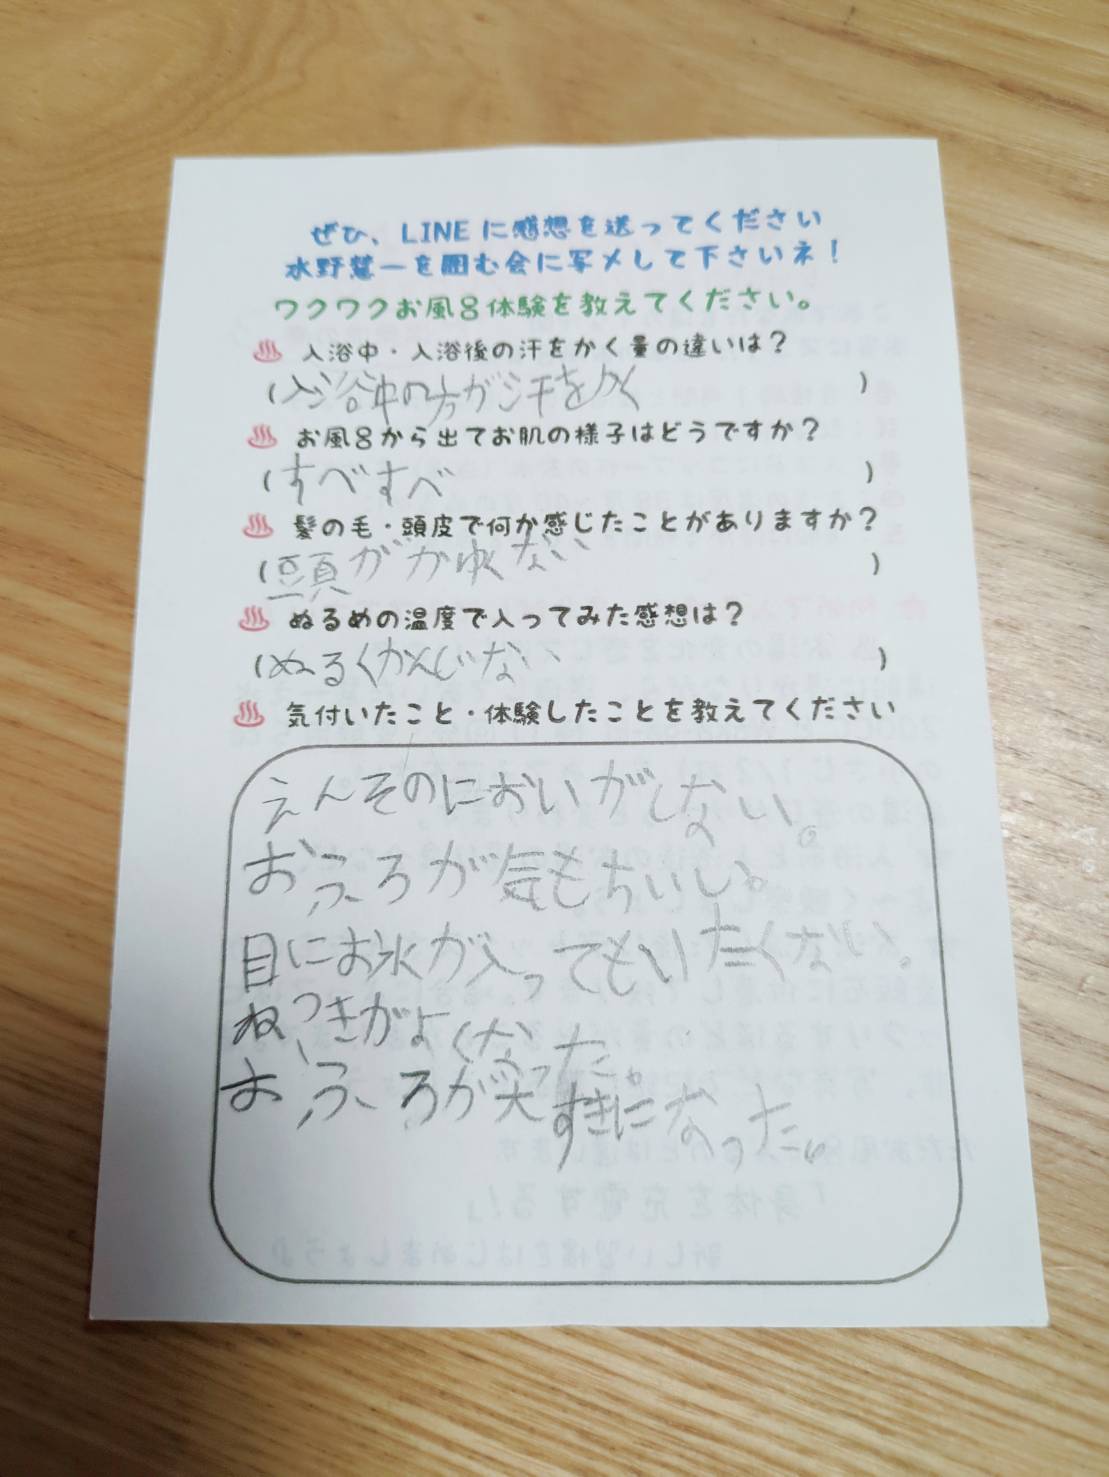 ぜひ、LINEに感想を送ってください
水野慧一を囲む会に写メして下さいネ！
ワクワクお風呂体験を教えてください。
♨ 入浴中・入浴後の汗をかく量の違いは？
（入浴中の方が汗をかく）
♨ お風呂から出てお肌の様子はどうですか？
（すべすべ）
♨ 髪の毛・頭皮で何か感じたことがありますか？
（頭がかゆくない）
♨ ぬるめの温度で入ってみた感想は？
（ぬるくかんじない）
♨ 気付いたこと・体験したことを教えてください
えんそのにおいがしない。
おふろが気もちいい。
目にお水が入ってもいたくない。
ねつきがよくなった。
おふろが大すきになった。
「身体を充電する！」
新しい習慣をはじめましょう♪